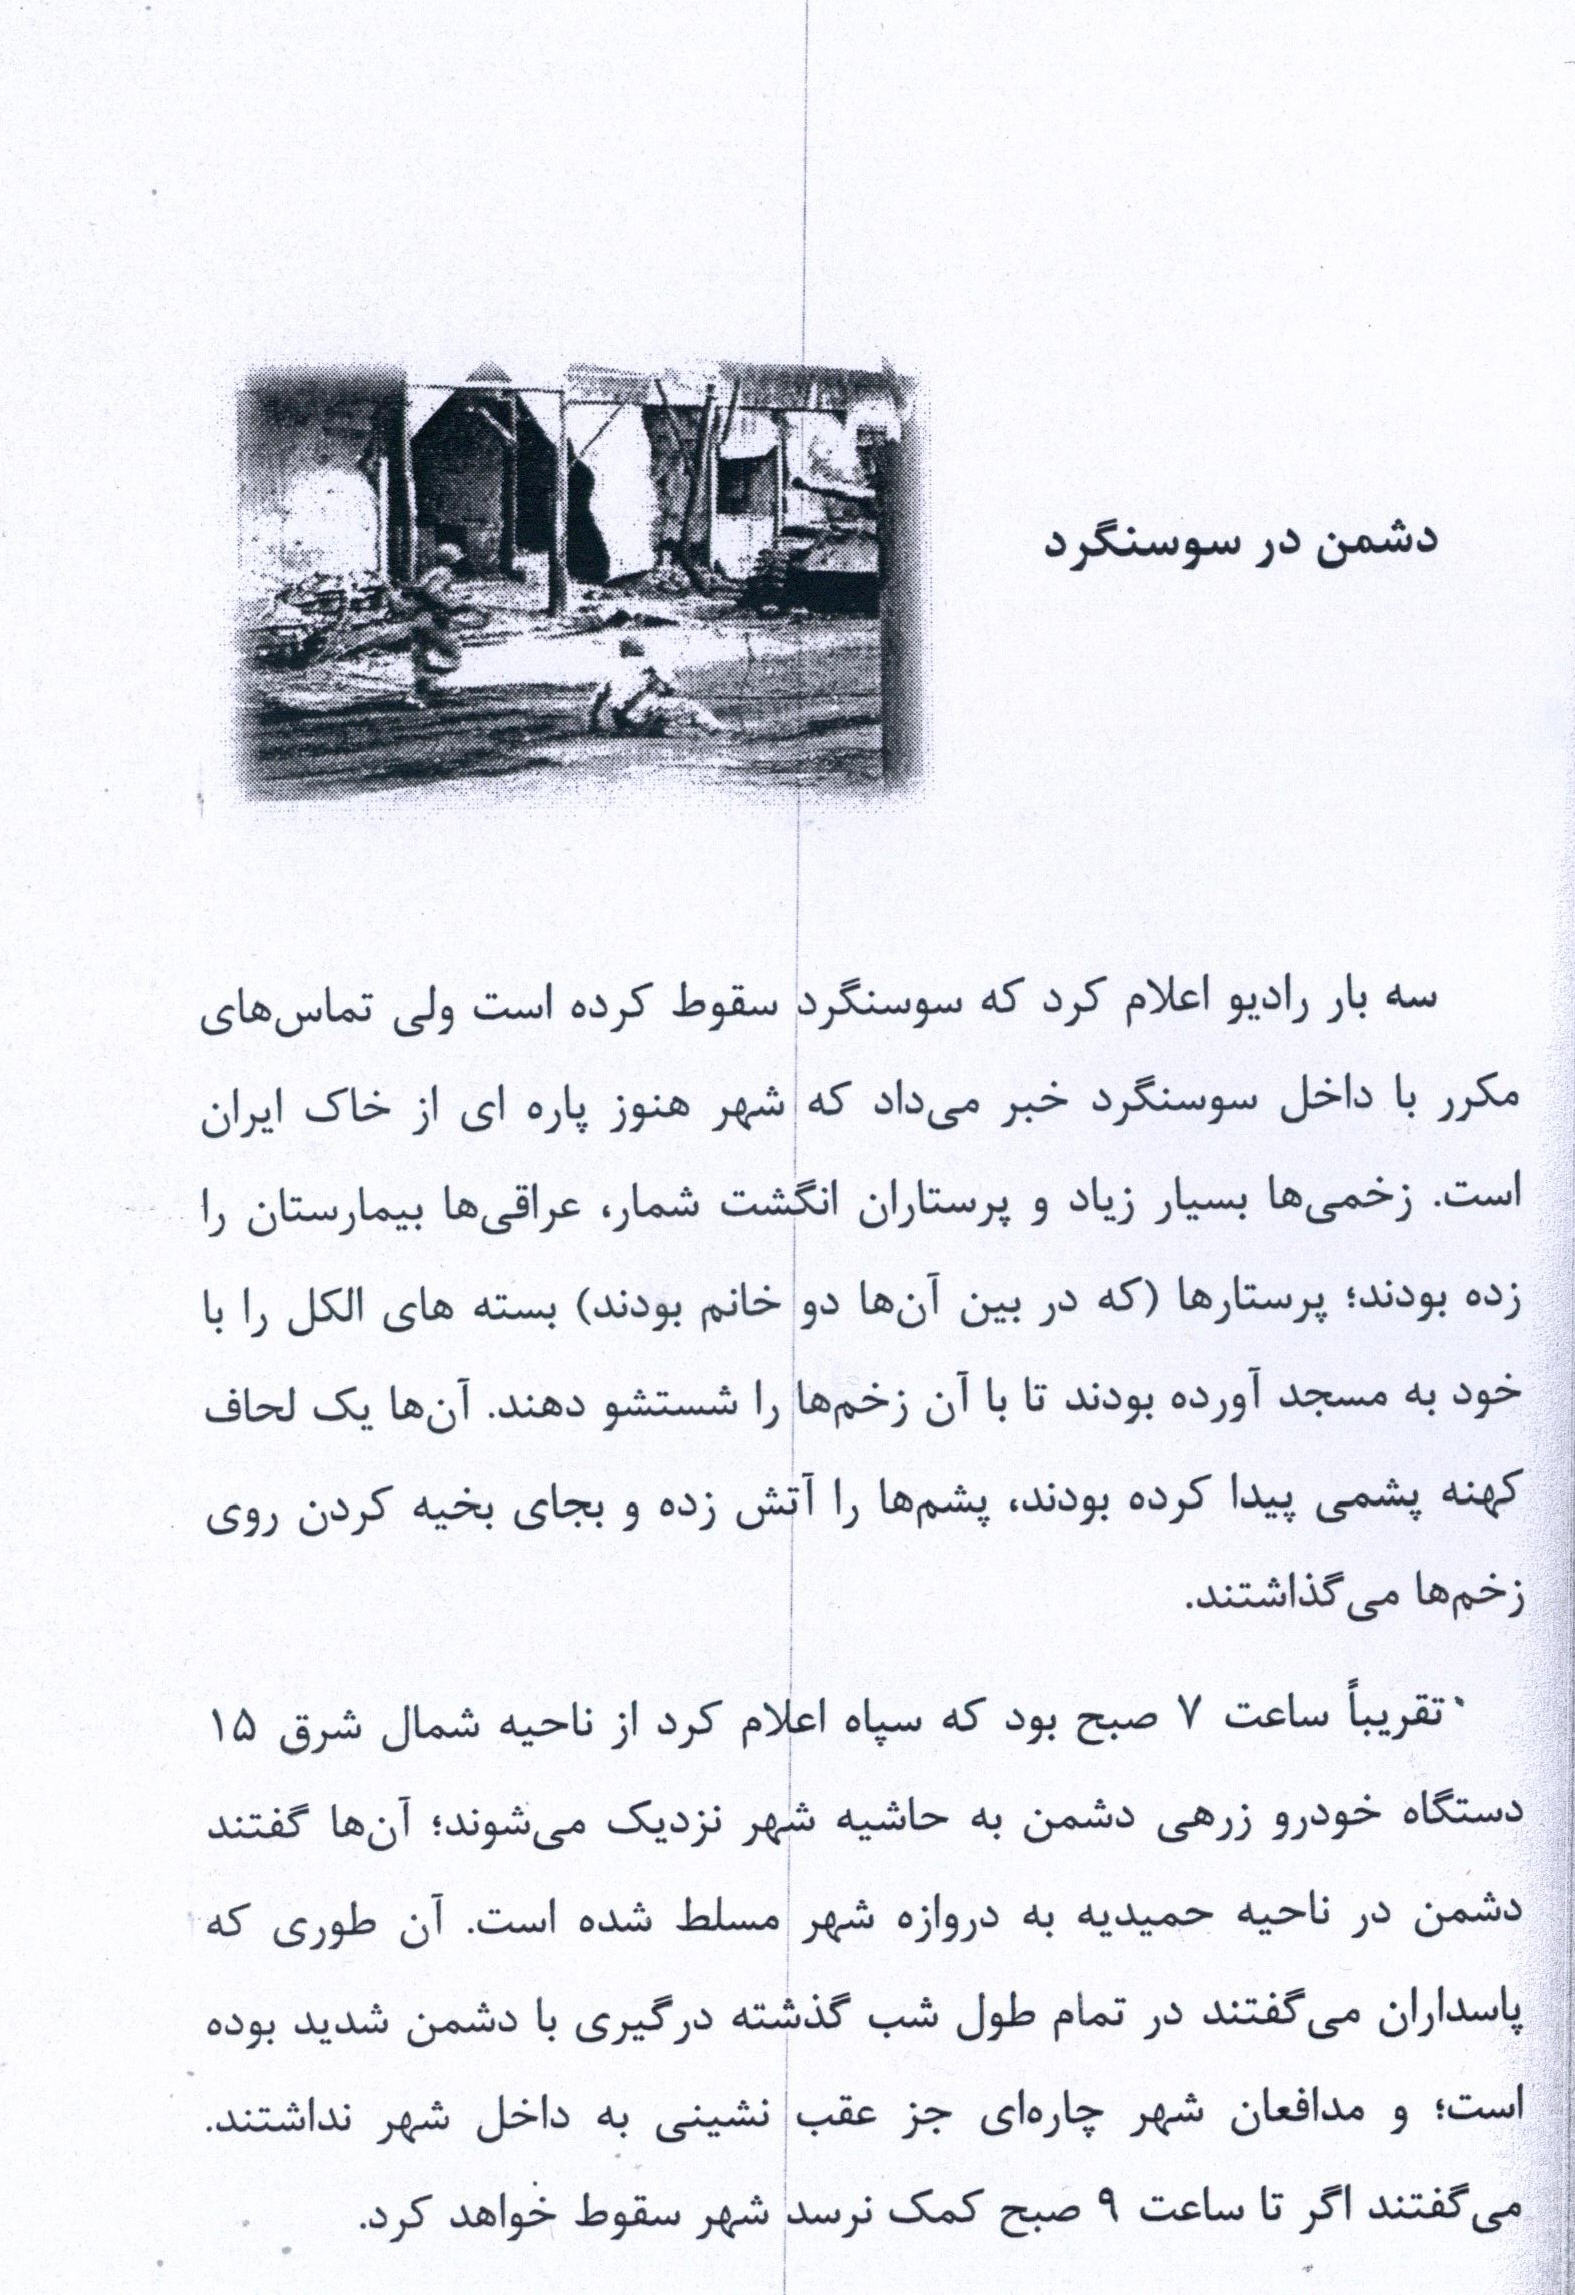 دشمن در سوسنگرد
سه بار رادیو اعلام کرد که سوسنگرد سقوط کرده است ولی تماس‌های
مکرر با داخل سوسنگرد خبر می‌داد که شهر هنوز پاره ای از خاک ایران
است. زخمی‌ها بسیار زیاد و پرستاران انگشت شمار، عراقی‌ها بیمارستان را
زده بودند؛ پرستارها (که در بین آن‌ها دو خانم بودند) بسته های الکل را با
خود به مسجد آورده بودند تا با آن زخم‌ها را شستشو دهند. آن‌ها یک لحاف
کهنه پشمی پیدا کرده بودند، پشم‌ها را آتش زده و بجای بخیه کردن روی
زخم‌ها می‌گذاشتند.
تقریباً ساعت ۷ صبح بود که سپاه اعلام کرد از ناحیه شمال شرق ۱۵
دستگاه خودرو زرهی دشمن به حاشیه شهر نزدیک می‌شوند؛ آن‌ها گفتند
دشمن در ناحیه حمیدیه به دروازه شهر مسلط شده است. آن طوری که
پاسداران می‌گفتند در تمام طول شب گذشته درگیری با دشمن شدید بوده
است؛ و مدافعان شهر چاره‌ای جز عقب نشینی به داخل شهر نداشتند.
می‌گفتند اگر تا ساعت ۹ صبح کمک نرسد شهر سقوط خواهد کرد.